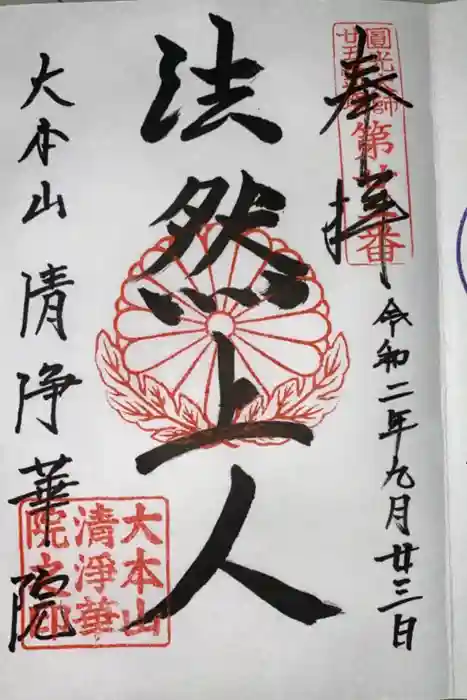 奉拝
令和二年九月廿三日
圓光大師
廿五
第
番
法然上人
大本山 清浄華院
大本山
清淨華
院之印